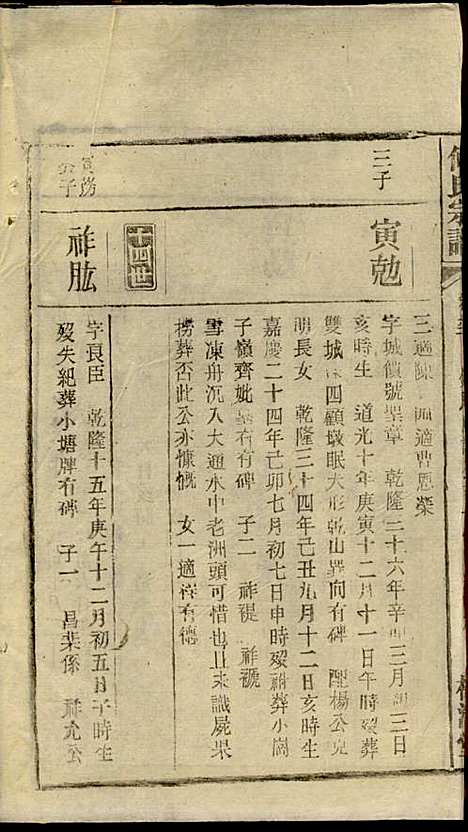 氏宗譜
三子
寅勀
三適陳 四適曹恩榮
字城 號 章 乾隆三十六年辛卯三月初三日
亥時生 道光十年庚寅十二月十一日午時歿葬
雙城 四顧墩眠犬形乾山巽向有碑 配楊公克
明長女 乾隆三十四年己丑九月十二日亥時生
嘉慶二十四年己卯七月初七日申時歿 葬小崗
子嶺齊妣墓右有碑 子二 祚禔 祚褫
雪凍舟沉入大通水中老洲頭可惜也且未識屍果
撈葬否此公亦慷慨 女一適程有德
十四世
寅
公子
祚肱
字良臣 乾隆十五年庚午十二月初五日子時生
歿失紀葬小塘牌有碑 子一 昌棐係 祚允公